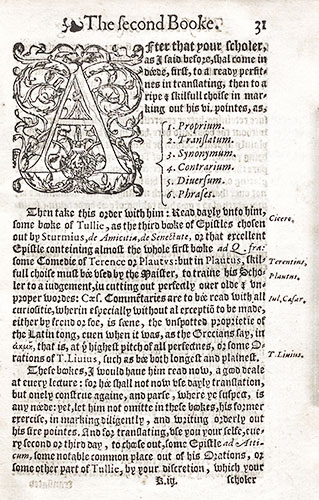 The second Booke. 31
After that your scholer,
as I said before, shal come in
dæde, first, to a ready perfit-
nes in translating, then to a
ripe & skilfull choise in mar-
king out his vi. pointes, as.
1. Proprium.
2. Translatum.
3. Synonymum.
4. Contrarium.
5. Diuersum.
6. Phrases.
Then take this order with him: Read dayly vnto him,
some booke of Tullie, as the third booke of Epistles chosen
out by Sturmius, de Amicitia, de Senectute, or that excellent
Epistle containing almost the whole first booke ad Q. fra:
some Comedie of Terence or Plautus: but in Plautus, skil-
full choise must bée vsed by the Maister, to traine his Scho-
ler to a iudgement, in cutting out perfectly ouer olde & vn-
proper wordes: Cæs. Commētaries are to bée read with all
curiositie, wherin especially without al exceptiō to be made,
either by frend or foe, is séene, the vnspotted proprietie of
the Latin tong, euen when it was, as the Grecians say, in
ἀκμῇ, that is, at yͤ highest pitch of all perfectnes, or some O-
rations of T. Liuius, such as bée both longest and plainest.
These bookes, I would haue him read now, a good deale
at euery lecture: for hée shall not now vse dayly translation,
but onely construe againe, and parse, where ye suspect, is
any néede: yet, let him not omitte in these bookes, his former
exercise, in marking diligently, and writing orderly out
his sixe pointes. And for translating, vse you your selfe, eue-
ry second or third day, to chose out, some Epistle ad Atti-
cum, some notable common place out of his Orations, or
some other part of Tullie, by your discretion, which your
K.iij. scholer
Cicero.
Terentius.
Plautus.
Iul, Cæsar.
T. Liuius.